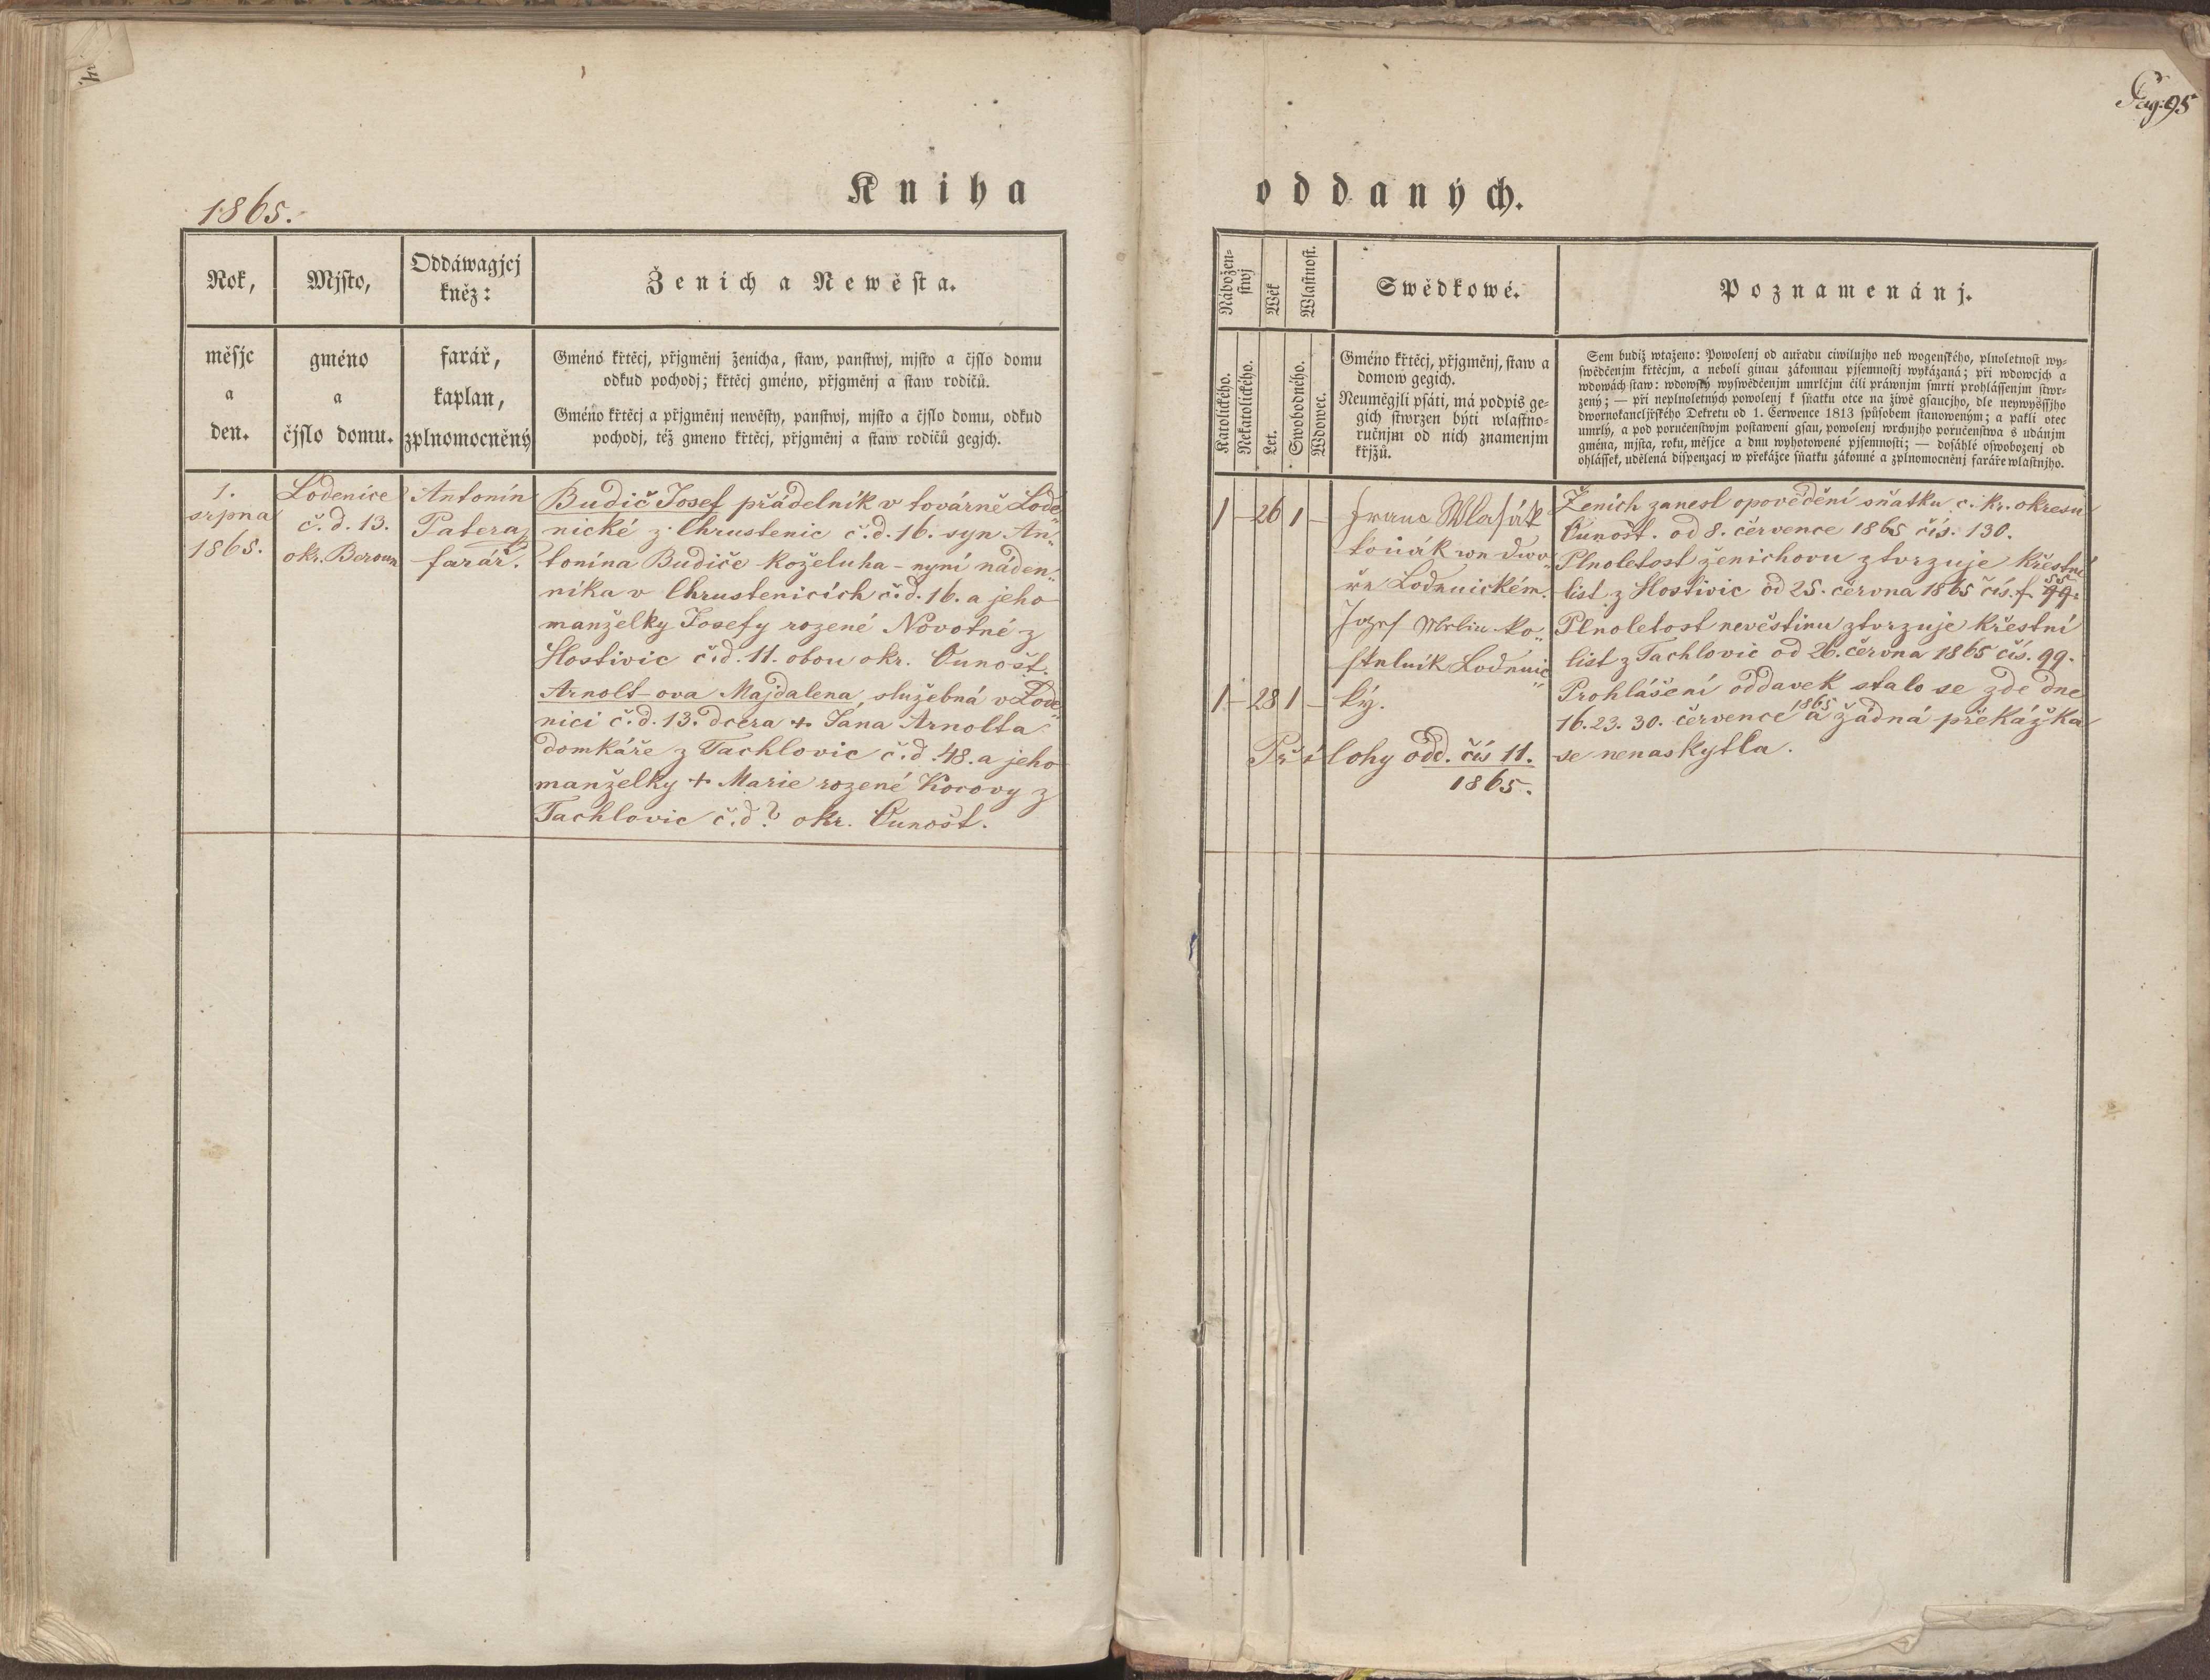 Pag. 95
Kniha
oddaných.
1865.
Rok,
měsjc
a
den.
Mjsto,
gméno
a
čjslo domu.
Oddáwagjcj
kněz:
farář,
kaplan,
zplnomocněný
Ženich a Newěsta.
Gméno křtěcj, přjgměnj ženicha, staw, panstwj, mjsto a čjslo domu
odkud pochodj; křtěcj gméno, přjgměnj a staw rodičů.
Gméno křtěcj a přjgměnj newěsty, panstwj, mjsto a čjslo domu, odkud
pochodj, též gmeno křtěcj, přjgměnj a staw rodičů gegjch.
Nábožen-
stwj
Katolického.
Nekatolického.
Wěk
Let.
Wlastnost.
Swobodného.
Wdowec.
Swědkowé.
Gméno křtěcj, přjgměnj, staw a
domow gegich.
Neumějgli psáti, má podpis ge-
gich stwrzen býti wlastno-
ručnjm od nich znamenjm
křjžů.
Poznamenánj.
Sem budiž wtaženo: Powolenj od auřadu ciwilnjho neb wogenského, plnoletnost wy-
swědčenjm křtěcjm, a neboli ginau zákonnau pjsemnostj wykázaná; při wdowcjch a
wdowách staw: wdowský wyswědčenjm umrlčjm čili práwnjm smrti prohlássenjm stwr-
zený; — při neplnoletných powolenj k sňatku otce na žiwě gsaucjho, dle neywyššjho
dwornokancljřského Dekretu od 1. Čerwence 1813 spůsobem stanoweným; a pakli otec
umrlý, a pod poručenstwjm postaweni gsau, powolenj wrchnjho poručenstwa s udánjm
gména, mjsta, roku, měsjce a dnu wyhotowené pjsemnosti; — dosáhlé oswobozenj od
ohlássek, udělená dispenzacj w překážce sňatku zákonné a zplnomocněnj faráře wlastnjho.
1.
srpna
1865.
Lodenice
č. d. 13.
okr. Beroun
Antonín
Patera
farář.
Budič Josef přádelník v továrně Lode„
nické z Chrustenic č. d. 16. syn An„
tonína Budiče koželuha – nyní náden„
níka v Chrustenicích č. d. 16. a jeho
manželky Josefy rozené Novotné z
Hostivic č. d. 11. obou okr. Ounošt.
Arnolt-ova Majdalena, služebná v Lode„
nici č. d. 13. dcera + Jana Arnolta
domkáře z Tachlovic č. d. 48. a jeho
manželky + Marie rozené Kocovy z
Tachlovic č. d.? okr. Ounošt.
1 – 26 1 –
1 – 28 1 –
Franc Wlasák
we dwo„
ře Lodenickém.
Jozef
Lodenic„
ký.
Přílohy odd. čís 11.
1865.
Ženich zanesl opovědění sňatku c. kr. okresu
Ounošt. od 8. července 1865 čís. 130.
Plnoletost ženichovu ztvrzuje křestní
list z Hostivic od 25. června 1865 čís. f. 55
Plnoletost nevěstinu ztvrzuje křestní
list z Tachlovic od 26. června 1865 čís. 99.
Prohlášení oddavek stalo se zde dne
16. 23. 30. července 1865 a žádná překážka
se nenaskytla.